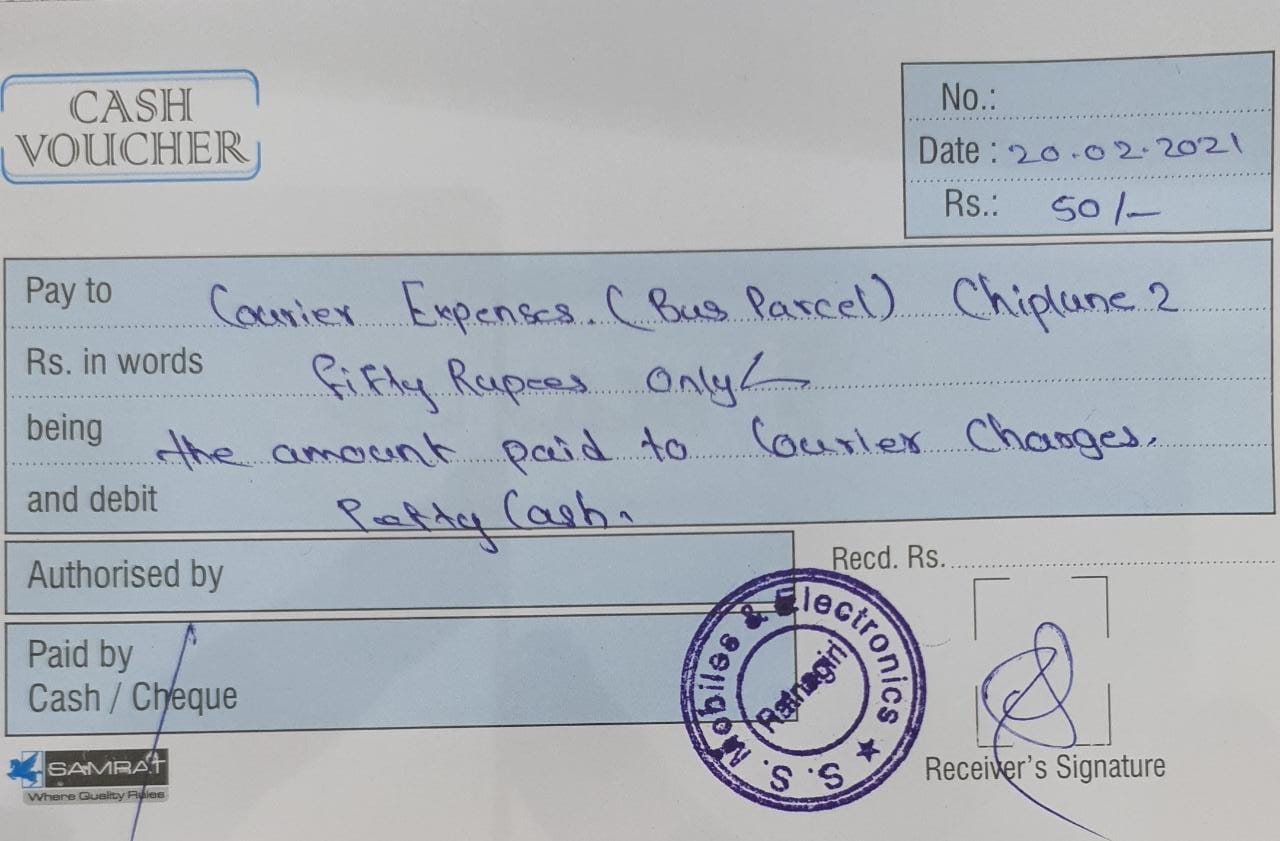 CASH
VOUCHER
No.:
Date : 20.02.2021
Rs.: 50/-
Pay to Courier Expenses. (Bus Parcel) Chiplune 2
Rs. in words fifty Rupees only
being the amount paid to Courier Charges.
and debit Petty Cash.
Authorised by
Recd. Rs.
Paid by
Cash / Cheque
S. S. Mobiles & Electronics ★
Ratnagiri
Receiver's Signature
SAMRAT
Where Quality Rules